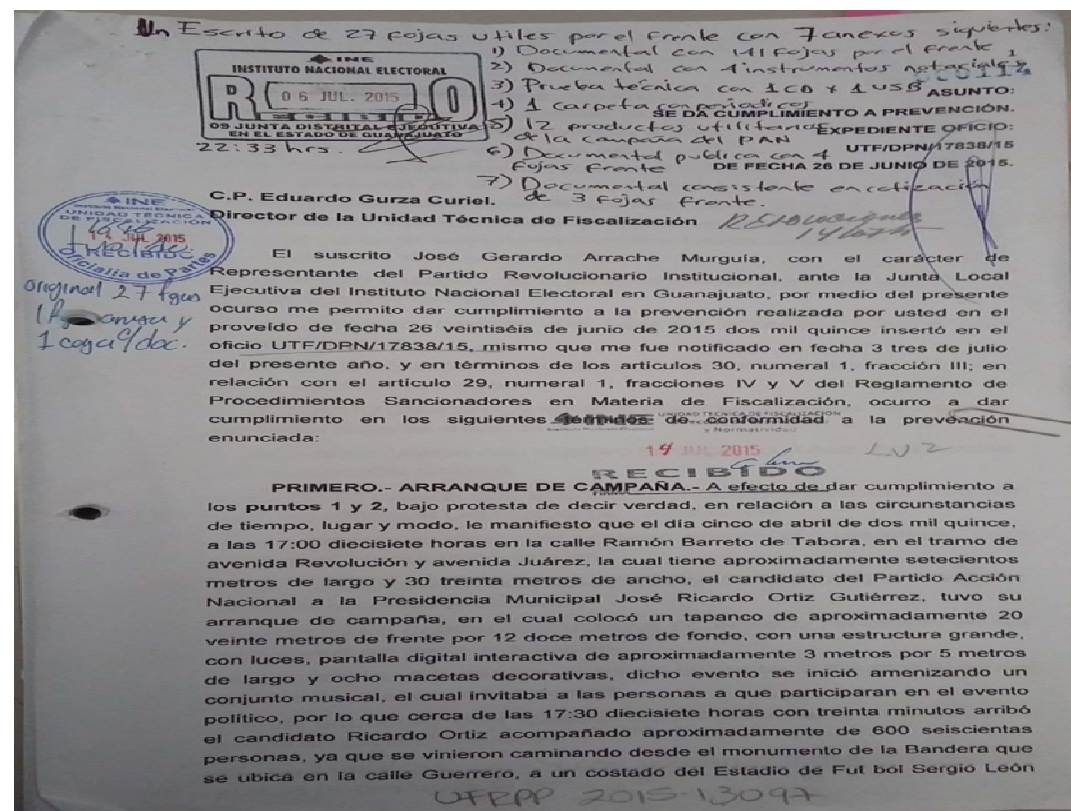 Un Escrito de 27 fojas utiles por el frente con 7 anexos siguientes:
1) Documental con 141 fojas por el frente
2) Documental con 1 instrumentos notariales
3) Prueba técnica con 1 CD x 1 USB
4) 1 carpeta con periodicos
5) 12 productos utilitarios de la campaña del PAN
6) Documental publica con 4 fojas frente
7) Documental consistente en cotización de 3 fojas frente.
INE
INSTITUTO NACIONAL ELECTORAL
RECIBIDO
06 JUL. 2015
09 JUNTA DISTRITAL EJECUTIVA
EN EL ESTADO DE GUANAJUATO
22:33 hrs.
ASUNTO:
SE DA CUMPLIMIENTO A PREVENCIÓN.
EXPEDIENTE OFICIO:
UTF/DPN/17838/15
DE FECHA 26 DE JUNIO DE 2015.
INE
UNIDAD TÉCNICA
DE FISCALIZACIÓN
14 JUL 2015
RECIBIDO
Oficialía de Partes
original 27 fojas
1 copia c/doc.
C.P. Eduardo Gurza Curiel.
Director de la Unidad Técnica de Fiscalización
El suscrito José Gerardo Arrache Murguía, con el carácter de
Representante del Partido Revolucionario Institucional, ante la Junta Local
Ejecutiva del Instituto Nacional Electoral en Guanajuato, por medio del presente
ocurso me permito dar cumplimiento a la prevención realizada por usted en el
proveído de fecha 26 veintiséis de junio de 2015 dos mil quince insertó en el
oficio UTF/DPN/17838/15, mismo que me fue notificado en fecha 3 tres de julio
del presente año, y en términos de los artículos 30, numeral 1, fracción III; en
relación con el artículo 29, numeral 1, fracciones IV y V del Reglamento de
Procedimientos Sancionadores en Materia de Fiscalización, ocurro a dar
cumplimiento en los siguientes términos de conformidad a la prevención
enunciada:
UNIDAD TÉCNICA DE FISCALIZACIÓN
y Normatividad
14 JUL 2015
RECIBIDO
PRIMERO.- ARRANQUE DE CAMPAÑA.- A efecto de dar cumplimiento a
los puntos 1 y 2, bajo protesta de decir verdad, en relación a las circunstancias
de tiempo, lugar y modo, le manifiesto que el día cinco de abril de dos mil quince,
a las 17:00 diecisiete horas en la calle Ramón Barreto de Tabora, en el tramo de
avenida Revolución y avenida Juárez, la cual tiene aproximadamente setecientos
metros de largo y 30 treinta metros de ancho, el candidato del Partido Acción
Nacional a la Presidencia Municipal José Ricardo Ortiz Gutiérrez, tuvo su
arranque de campaña, en el cual colocó un tapanco de aproximadamente 20
veinte metros de frente por 12 doce metros de fondo, con una estructura grande,
con luces, pantalla digital interactiva de aproximadamente 3 metros por 5 metros
de largo y ocho macetas decorativas, dicho evento se inició amenizando un
conjunto musical, el cual invitaba a las personas a que participaran en el evento
político, por lo que cerca de las 17:30 diecisiete horas con treinta minutos arribó
el candidato Ricardo Ortiz acompañado aproximadamente de 600 seiscientas
personas, ya que se vinieron caminando desde el monumento de la Bandera que
se ubica en la calle Guerrero, a un costado del Estadio de Fut bol Sergio León
UFRPP 2015-13097